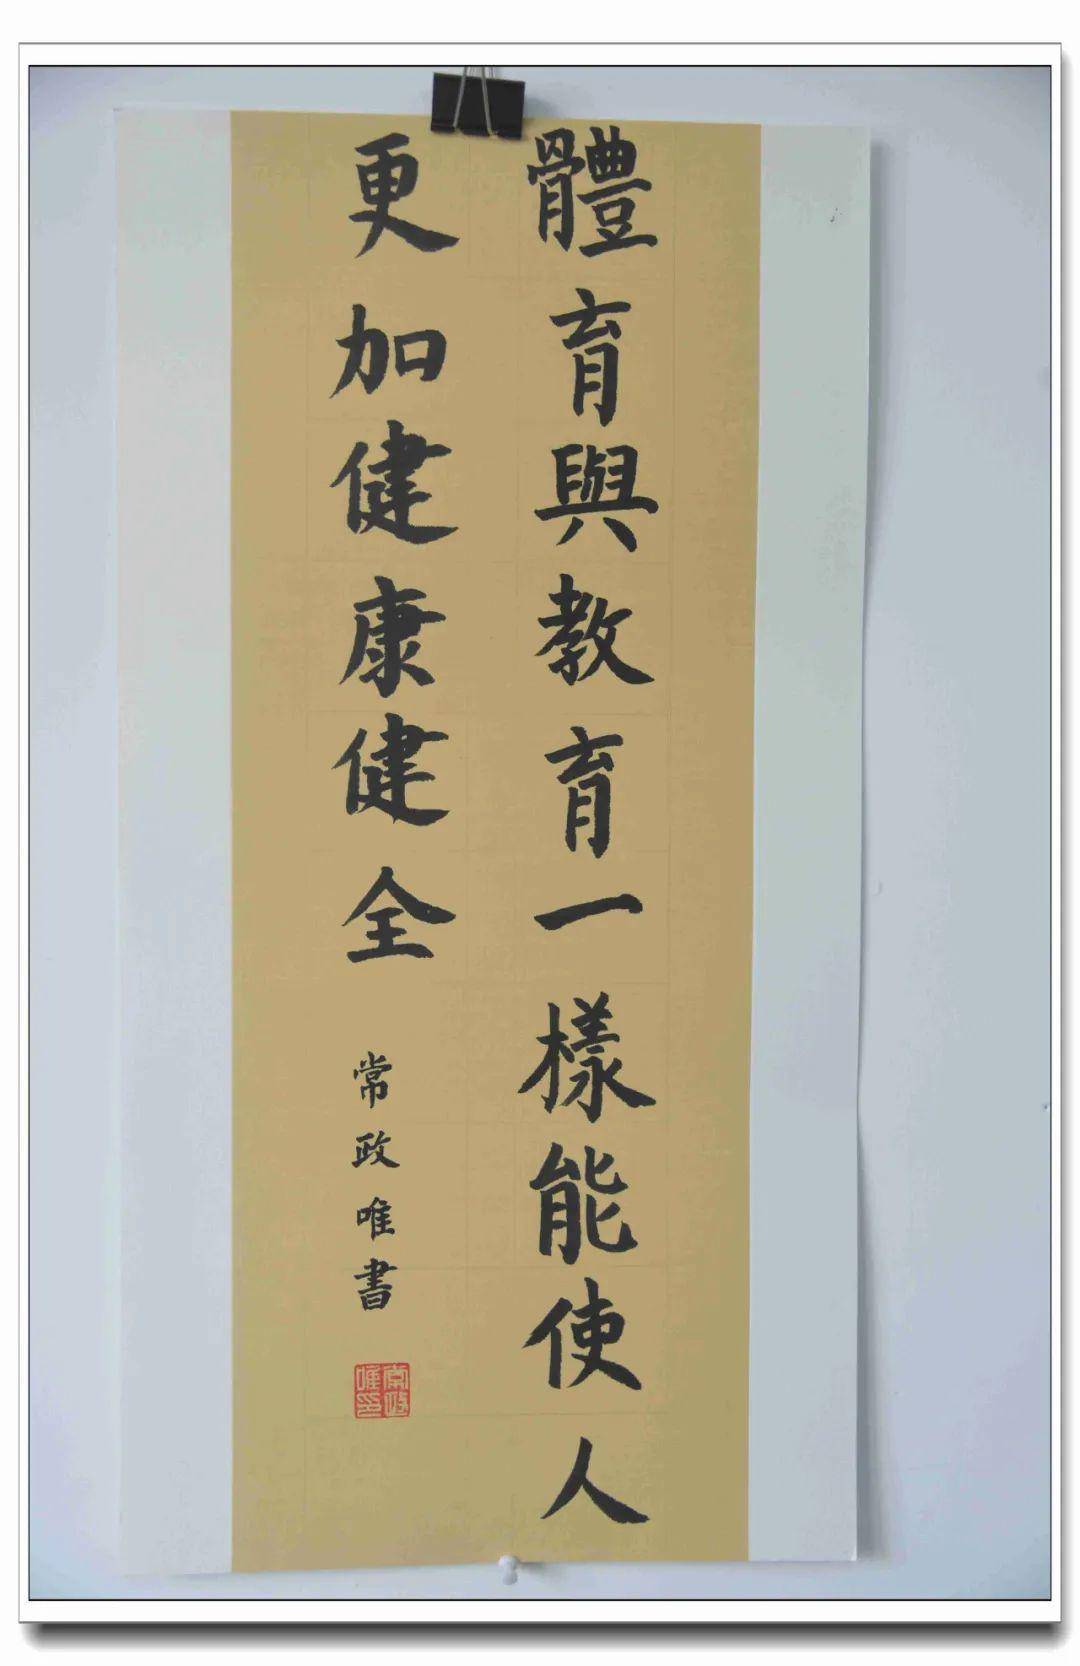 體育與教育一樣能使人
更加健康健全
常政唯書
常政唯印